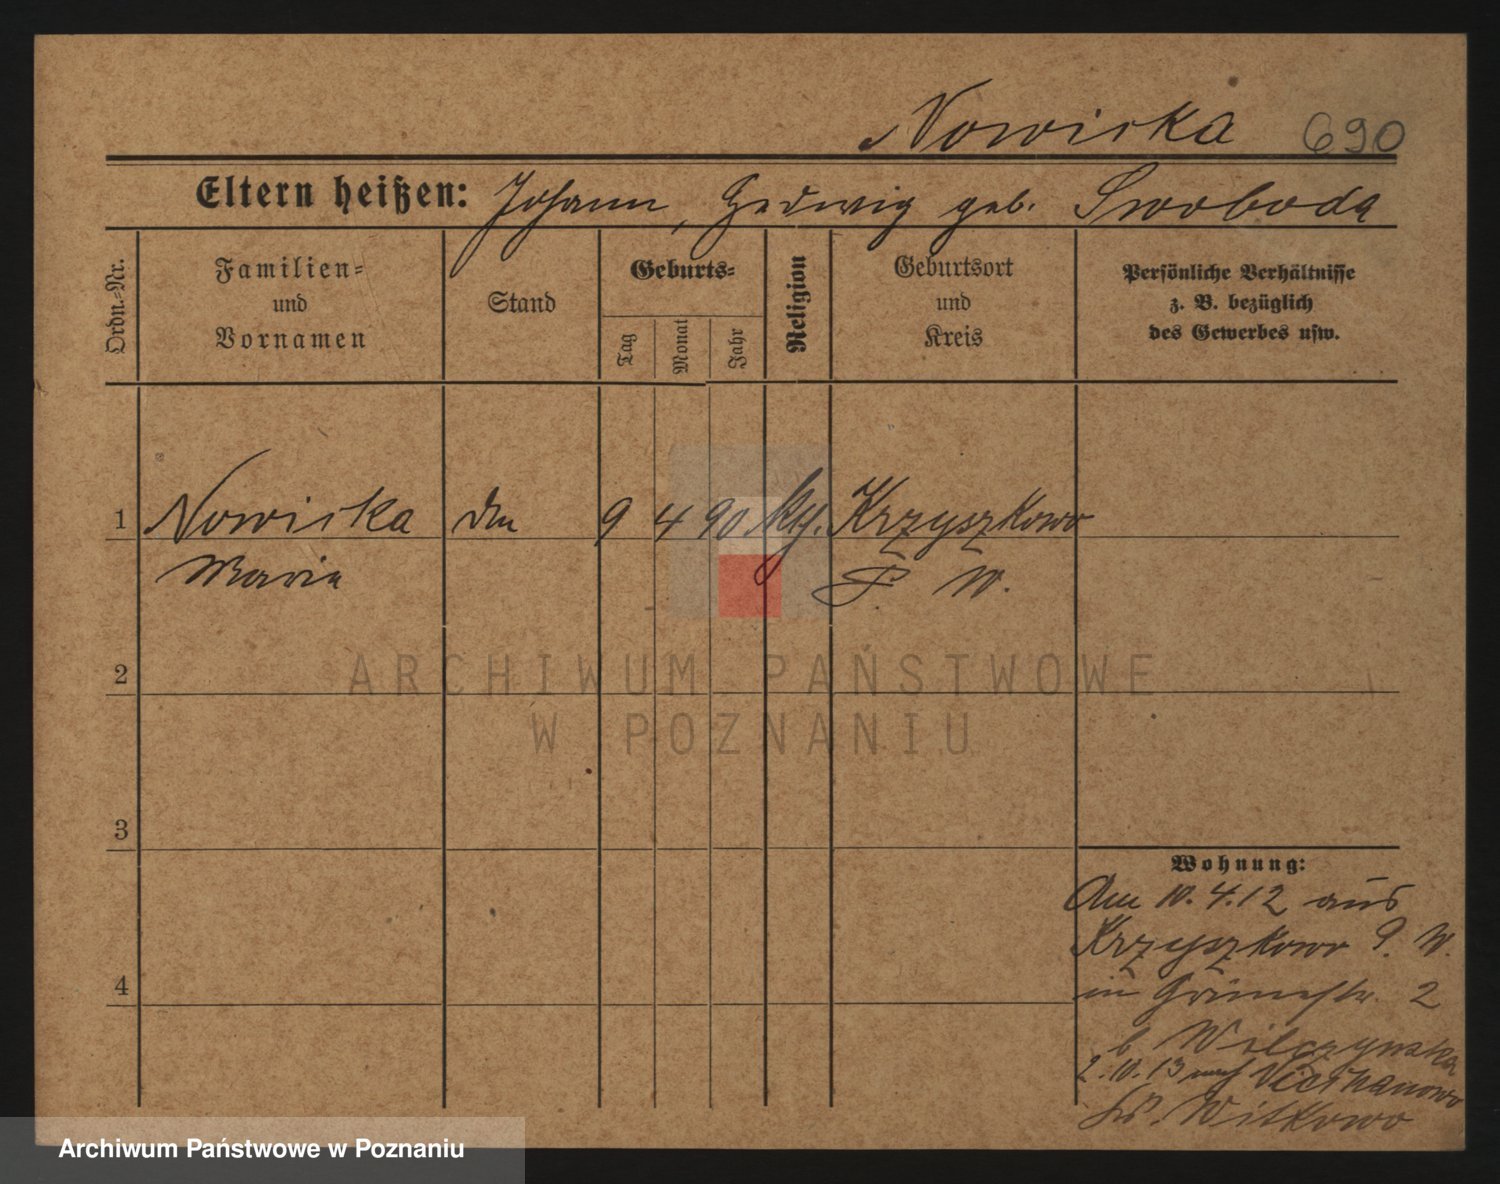 Nowicka 690
Eltern heißen: Johann, Hedwig geb. Swoboda
Ordn.-Nr.
Familien-
und
Vornamen
Stand
Geburts-
Tag
Monat
Jahr
Religion
Geburtsort
und
Kreis
Persönliche Verhältnisse
z. B. bezüglich
des Gewerbes usw.
1 Nowicka 9 4 90 kth. Krzyszkowo
Maria P. W.
2
ARCHIWUM PAŃSTWOWE
W POZNANIU
3
4
Wohnung:
Am 10.4.12 aus
Krzyszkowo P. W.
in Grünestr. 2
b. Wilczynska
2.10.13 nach
Kr. Witkowo
Archiwum Państwowe w Poznaniu